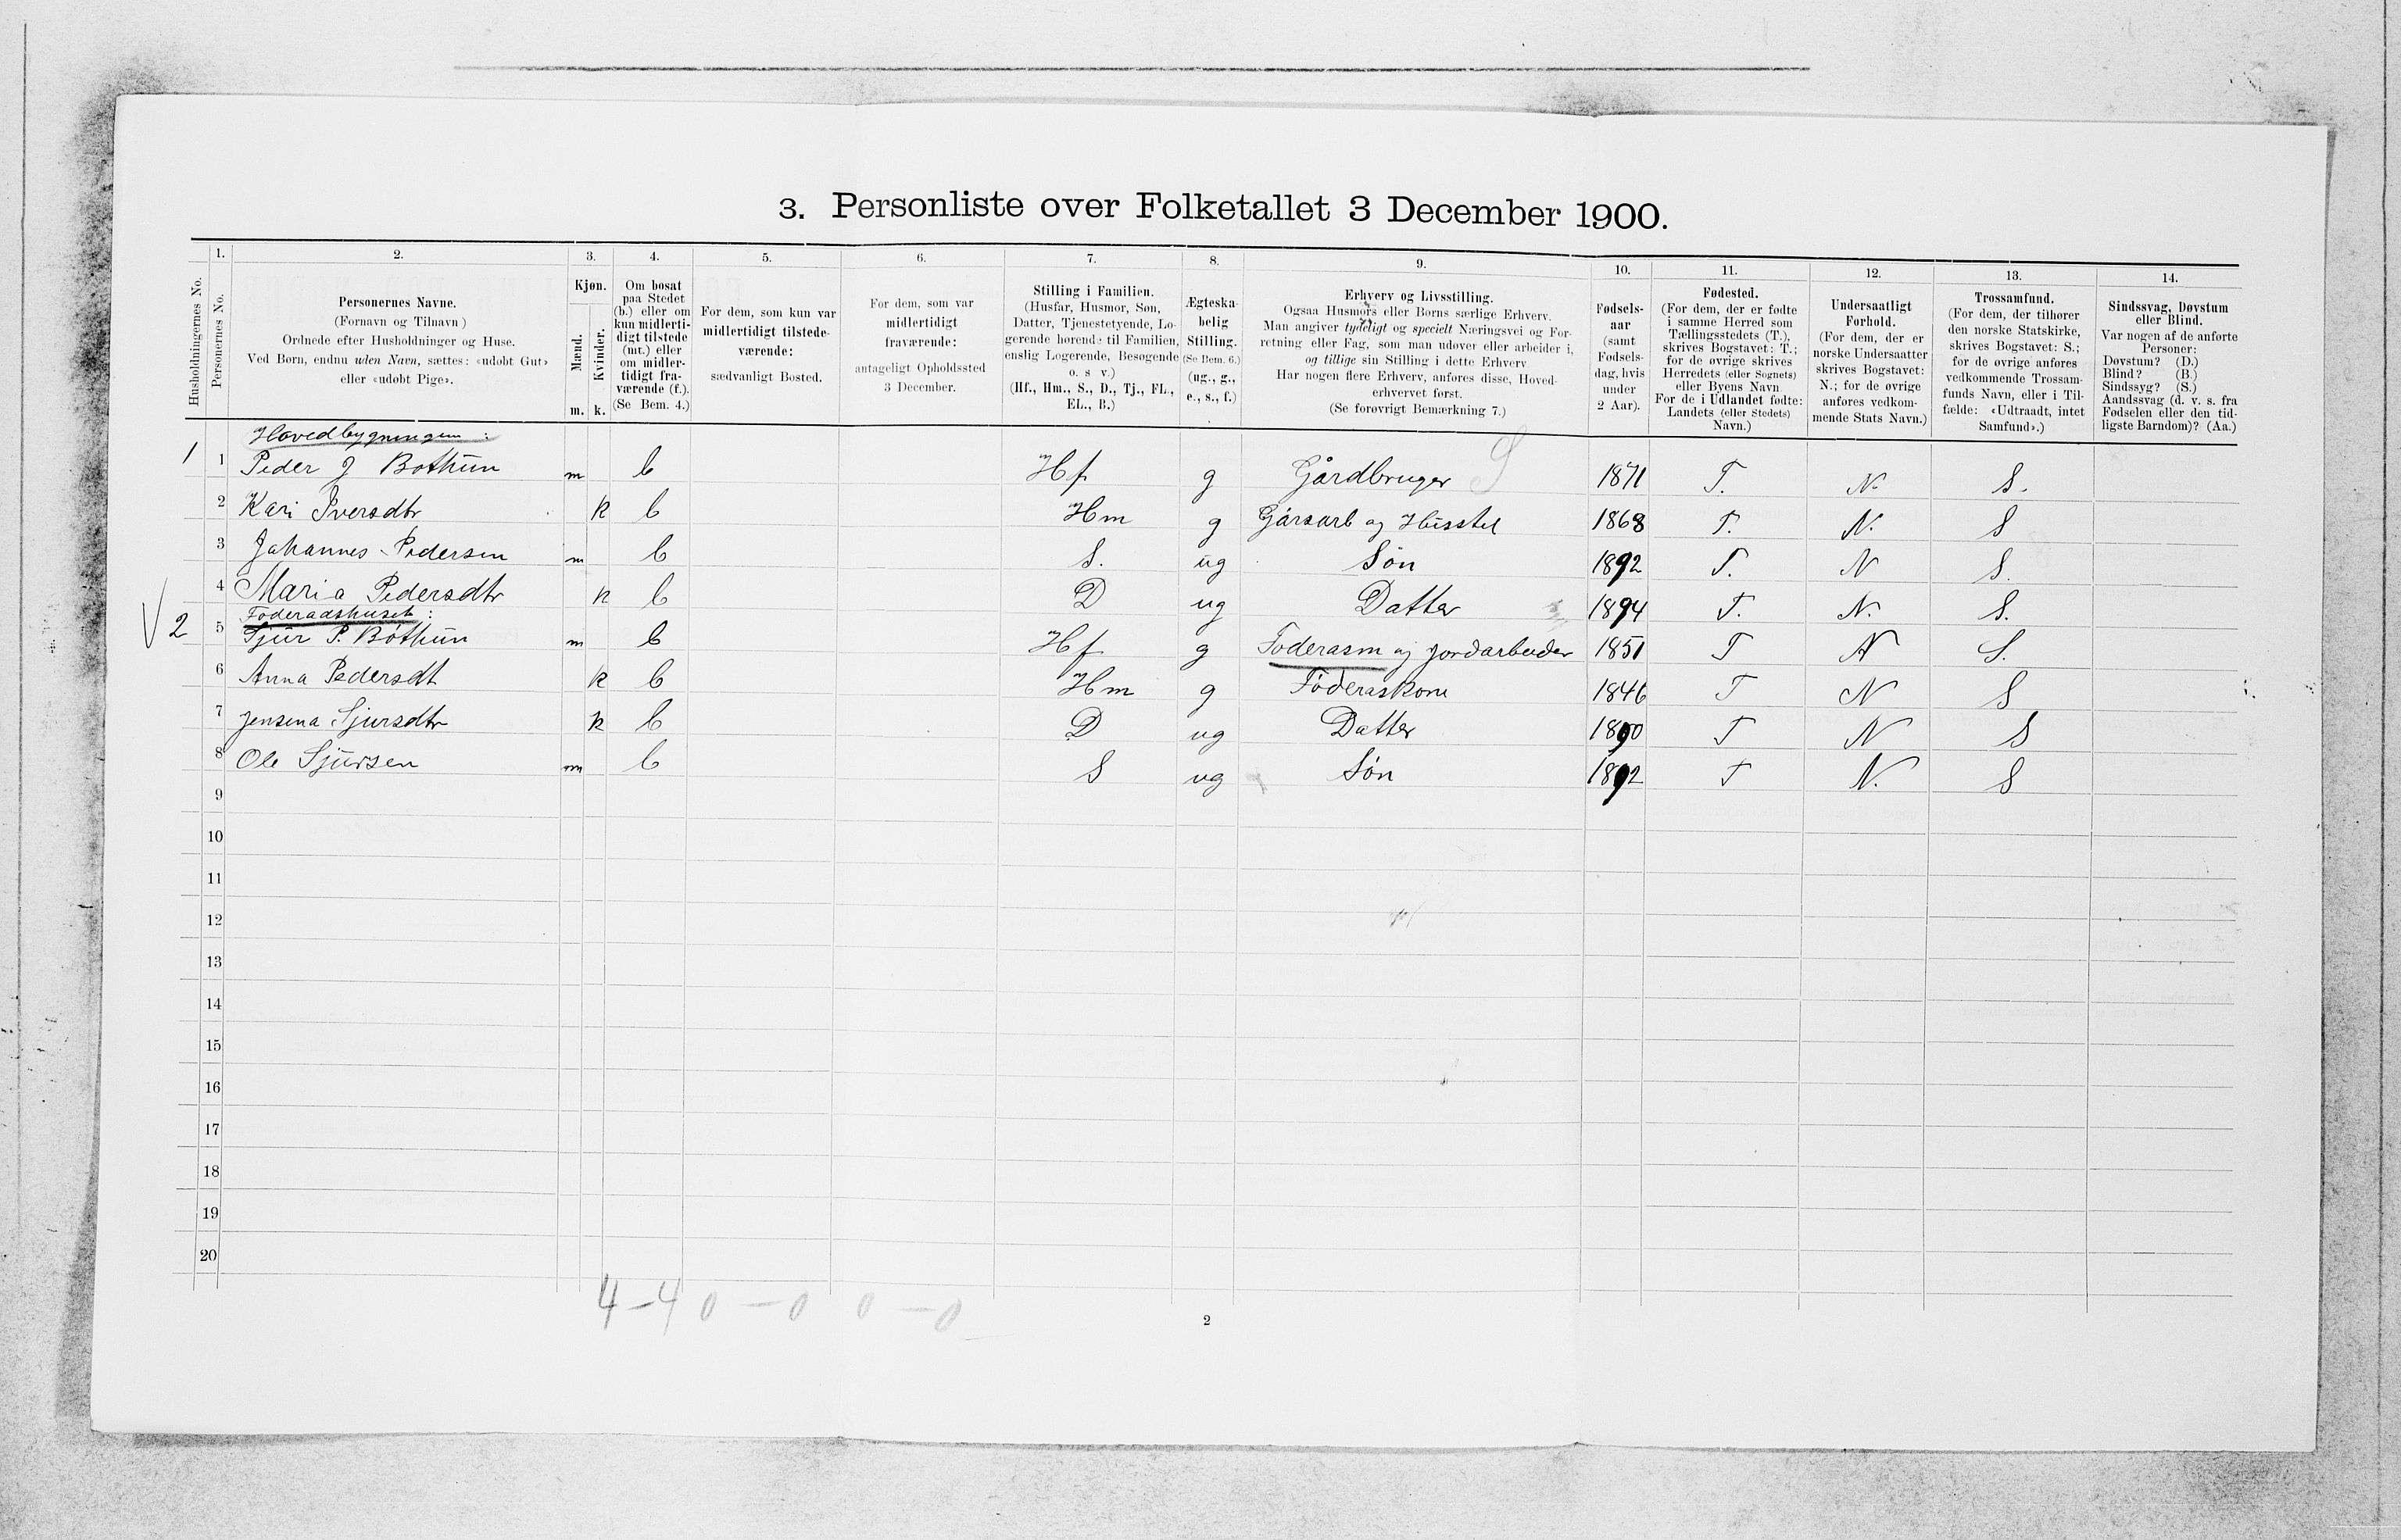 3. Personliste over Folketallet 3 December 1900.
1. 2. 3. 4. 5. 6. 7. 8. 9. 10. 11. 12. 13. 14.
Husholdningernes No.
Personernes No.
Personernes Navne.
(Fornavn og Tilnavn)
Ordnede efter Husholdninger og Huse.
Ved Børn, endnu uden Navn, sættes: «udøbt Gut»
eller «udøbt Pige».
Kjøn.
Mænd.
Kvinder.
m. k.
Om bosat
paa Stedet
(b.) eller om
kun midlerti-
digt tilstede
(mt.) eller
om midler-
tidigt fra-
værende (f.).
(Se Bem. 4.)
For dem, som kun var
midlertidigt tilstede-
værende:
sædvanligt Bosted.
For dem, som var
midlertidigt
fraværende:
antageligt Opholdssted
3 December.
Stilling i Familien.
(Husfar, Husmor, Søn,
Datter, Tjenestetyende, Lo-
gerende hørende til Familien,
enslig Logerende, Besøgende
o. s v.)
(Hf., Hm., S., D., Tj., FL.,
EL., B.)
Ægteska-
belig
Stilling.
(Se Bem. 6.)
(ug., g.,
e., s., f.)
Erhverv og Livsstilling.
Ogsaa Husmors eller Børns særlige Erhverv.
Man angiver tydeligt og specielt Næringsvei og For-
retning eller Fag, som man udøver eller arbeider i,
og tillige sin Stilling i dette Erhverv
Har nogen flere Erhverv, anføres disse, Hoved-
erhvervet først.
(Se forøvrigt Bemærkning 7.)
Fødsels-
aar
(samt
Fødsels-
dag, hvis
under
2 Aar).
Fødested.
(For dem, der er fødte
i samme Herred som
Tællingsstedets (T.),
skrives Bogstavet: T.;
for de øvrige skrives
Herredets (eller Sognets)
eller Byens Navn
For de i Udlandet fødte:
Landets (eller Stedets)
Navn.)
Undersaatligt
Forhold.
(For dem, der er
norske Undersaatter
skrives Bogstavet:
N.; for de øvrige
anføres vedkom-
mende Stats Navn.)
Trossamfund.
(For dem, der tilhører
den norske Statskirke,
skrives Bogstavet: S.;
for de øvrige anføres
vedkommende Trossam-
funds Navn, eller i Til-
fælde: «Udtraadt, intet
Samfund».)
Sindssvag, Døvstum
eller Blind.
Var nogen af de anførte
Personer:
Døvstum? (D.)
Blind? (B.)
Sindssyg? (S.)
Aandssvag (d. v. s. fra
Fødselen eller den tid-
ligste Barndom)? (Aa.)
Hovedbygningen:
1 1 Peder J Bøthun m b Hf g Gårdbruger 1871 T. N. S.
2 Kari Iversdtr k b Hm g Gårsarb og Husstel 1868 T. N. S
3 Johannes Pedersen m b S. ug Søn 1892 T. N S.
4 Maria Pedersdtr k b D ug Datter 1894 T. N. S.
Føderaadshuset:
2 5 Sjur P. Bøthun m b Hf g Føderasm og jordarbeider 1851 T N S.
6 Anna Pedersdt k b Hm g Føderaskone 1846 T N S
7 Jensina Sjursdtr k b D ug Datter 1890 T N S
8 Ole Sjursen m b S ug Søn 1892 T N. S
9
10
11
12
13
14
15
16
17
18
19
20
4–4 0–0 0–0
2